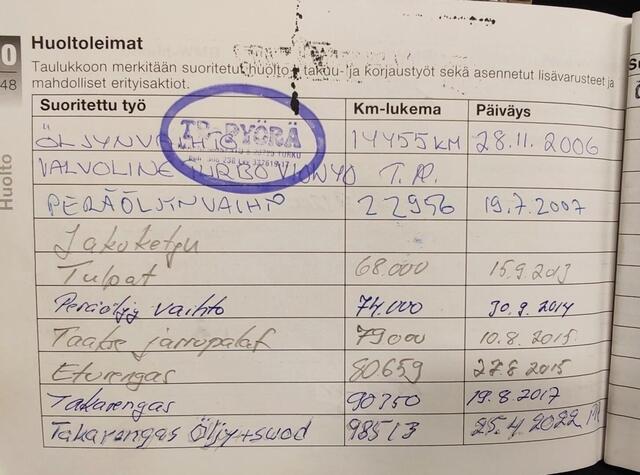 0
48
Huolto
Huoltoleimat
Taulukkoon merkitään suoritetut huolto-, takuu- ja korjaustyöt sekä asennetut lisävarusteet ja
mahdolliset erityisaktiot.
Suoritettu työ Km-lukema Päiväys
ÖLJYNVAIHTO 14455 KM 28.11.2006
TR-PYÖRÄ
TURKU
VALVOLINE TURBO V 10W40 T.R.
PERÄÖLJYNVAIHTO 22956 19.7.2007
Jakoketju
Tulpat 68.000 15.9.2013
Peräöljy vaihto 74.000 30.9.2014
Taakse jarrupalat 79000 10.8.2015
Eturengas 80659 27.8 2015
Takarengas 90350 19.8.2017
Takarengas Öljy+suod 98513 25.4.2022